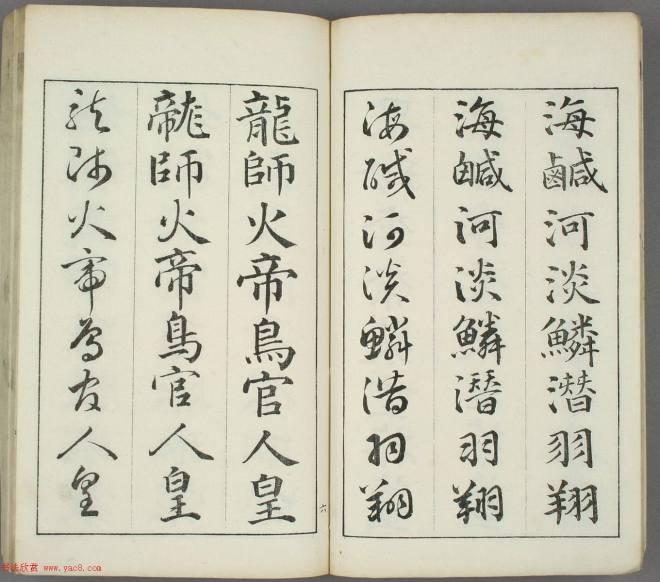 海鹹河淡鱗潛羽翔
海鹹河淡鱗潛羽翔
海鹹河淡鱗潛羽翔
六
龍師火帝鳥官人皇
龍師火帝鳥官人皇
龍師火帝鳥官人皇
书法欣赏 www.yac8.com